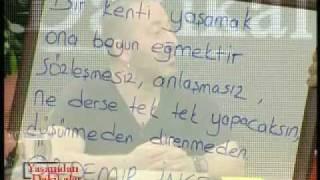 Bir kenti yaşamak
ona boyun eğmektir
sözleşmesiz, anlaşmasız,
ne derse tek tek yapacaksın,
düşünmeden direnmeden
Yaşamdan
Dakikalar